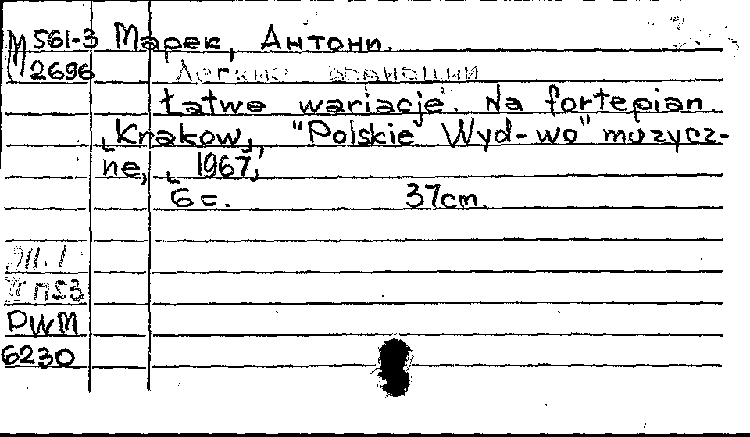 М 561-3 Марек, Антони.
2696 Легкие вариации
Łatwe wariacje. Na fortepian.
[Krakow], "Polskie Wyd-wo" muzycz-
ne, [1967]
6 c. 37cm.
PWM
6230